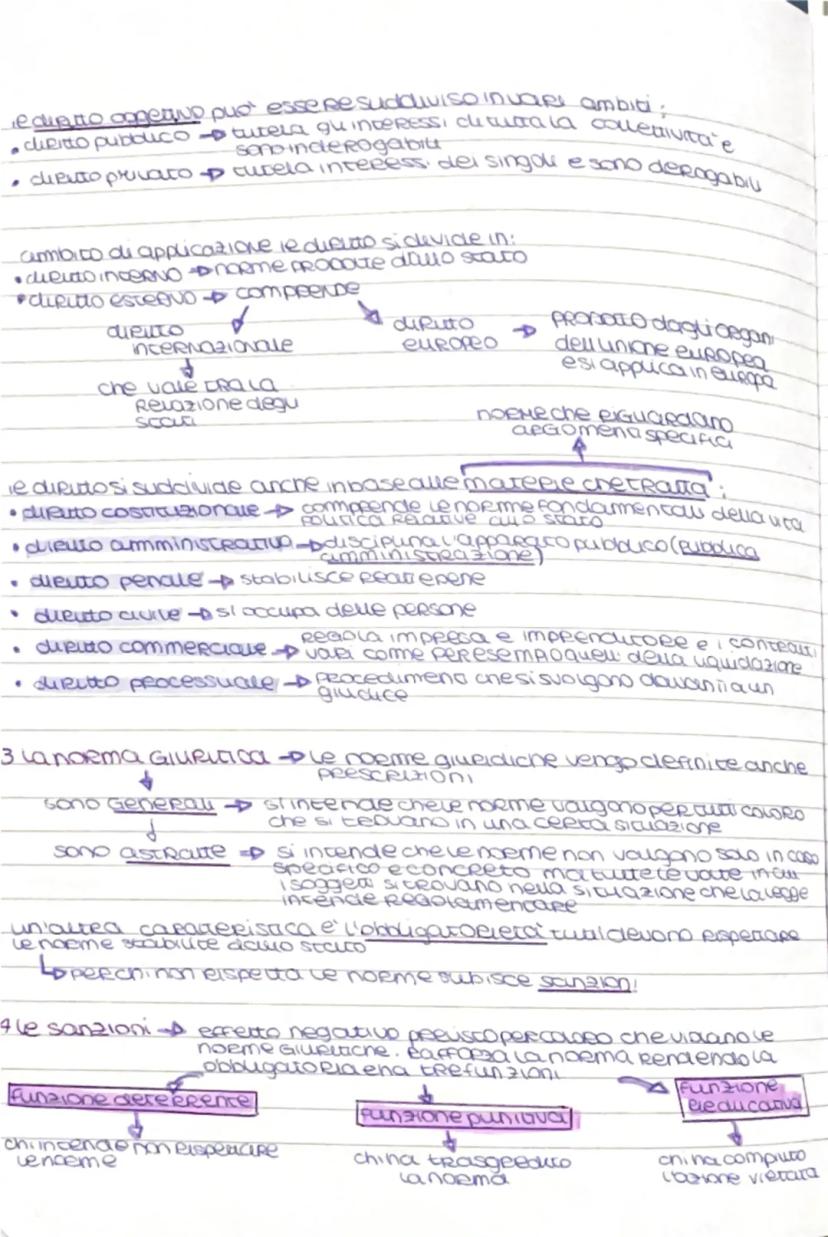 il diritto oggettivo può essere suddiviso in vari ambiti:
• diritto pubblico → tutela gli interessi di tutta la collettività e
sono inderogabili
• diritto privato → tutela interessi dei singoli e sono derogabili
ambito di applicazione il diritto si divide in:
• diritto interno → norme prodotte dallo stato
• diritto esterno → comprende
diritto
internazionale
che vale tra la
relazione degli
stati
diritto
europeo →
prodotto dagli organi
dell'unione europea
e si applica in europa
norme che riguardano
argomenti specifici
il diritto si suddivide anche in base alle materie che tratta:
• diritto costituzionale → comprende le norme fondamentali della vita
politica relative allo stato
• diritto amministrativo → disciplina l'apparato pubblico (pubblica
amministrazione)
• diritto penale → stabilisce reati e pene
• diritto civile → si occupa delle persone
• diritto commerciale → regola impresa e imprenditore e i contratti
vari come per esempio quelli della liquidazione
• diritto processuale → procedimenti che si svolgono davanti a un
giudice
3 la norma GIURITICA → le norme giuridiche vengo definite anche
PRESCRIZIONI
sono Generali → si intende che le norme valgono per tutti coloro
che si trovano in una certa situazione
sono astratte → si intende che le norme non valgono solo in caso
specifico e concreto ma tutte le volte in cui
i soggetti si trovano nella situazione che la legge
intende regolamentare
un'altra caratteristica è l'obbligatorietà tutti devono rispettare
le norme stabilite dallo stato
↳ per chi non rispetta le norme subisce sanzioni
4 le sanzioni → effetto negativo previsto per coloro che violano le
norme GIURITICHE. Rafforza la norma rendendola
obbligatoria e ha tre funzioni
funzione deterrente
chi intende non rispettare
le norme
funzione punitiva
chi ha trasgredito
la norma
funzione
rieducativa
chi ha compiuto
l'azione vietata